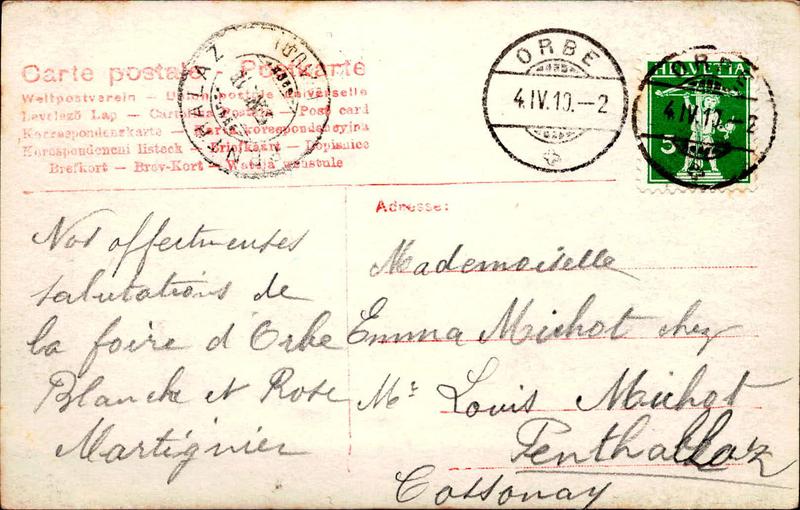 Carte postale - Postkarte
Weltpostverein — Union postale universelle
Levelező Lap — Cartolina Postale — Post card
Korrespondenzkarte — Karta korespondencyjna
Korespondencni listeck — Briefkaart — Dopisnice
Brefkort — Brev-Kort —
ORBE
4.IV.10.–2
HELVETIA
5
ORBE
4.IV.10.–2
Adresse:
Nos affectueuses
salutations de
la foire d'Orbe
Blanche et Rose
Martignier
Mademoiselle
Emma Michot chez
Mr Louis Michot
Penthallaz
Cossonay